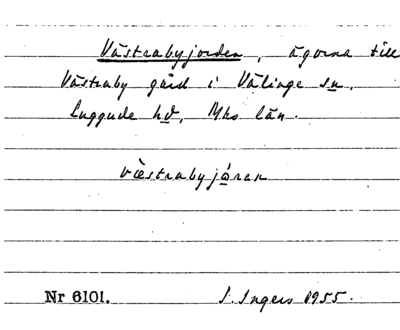 Västrabyjorden, ägorna till
Västraby gård i Välinge sn,
Luggude hd, Mhs län.
væstrabyjóran
Nr 6101. I. Ingers 1955.